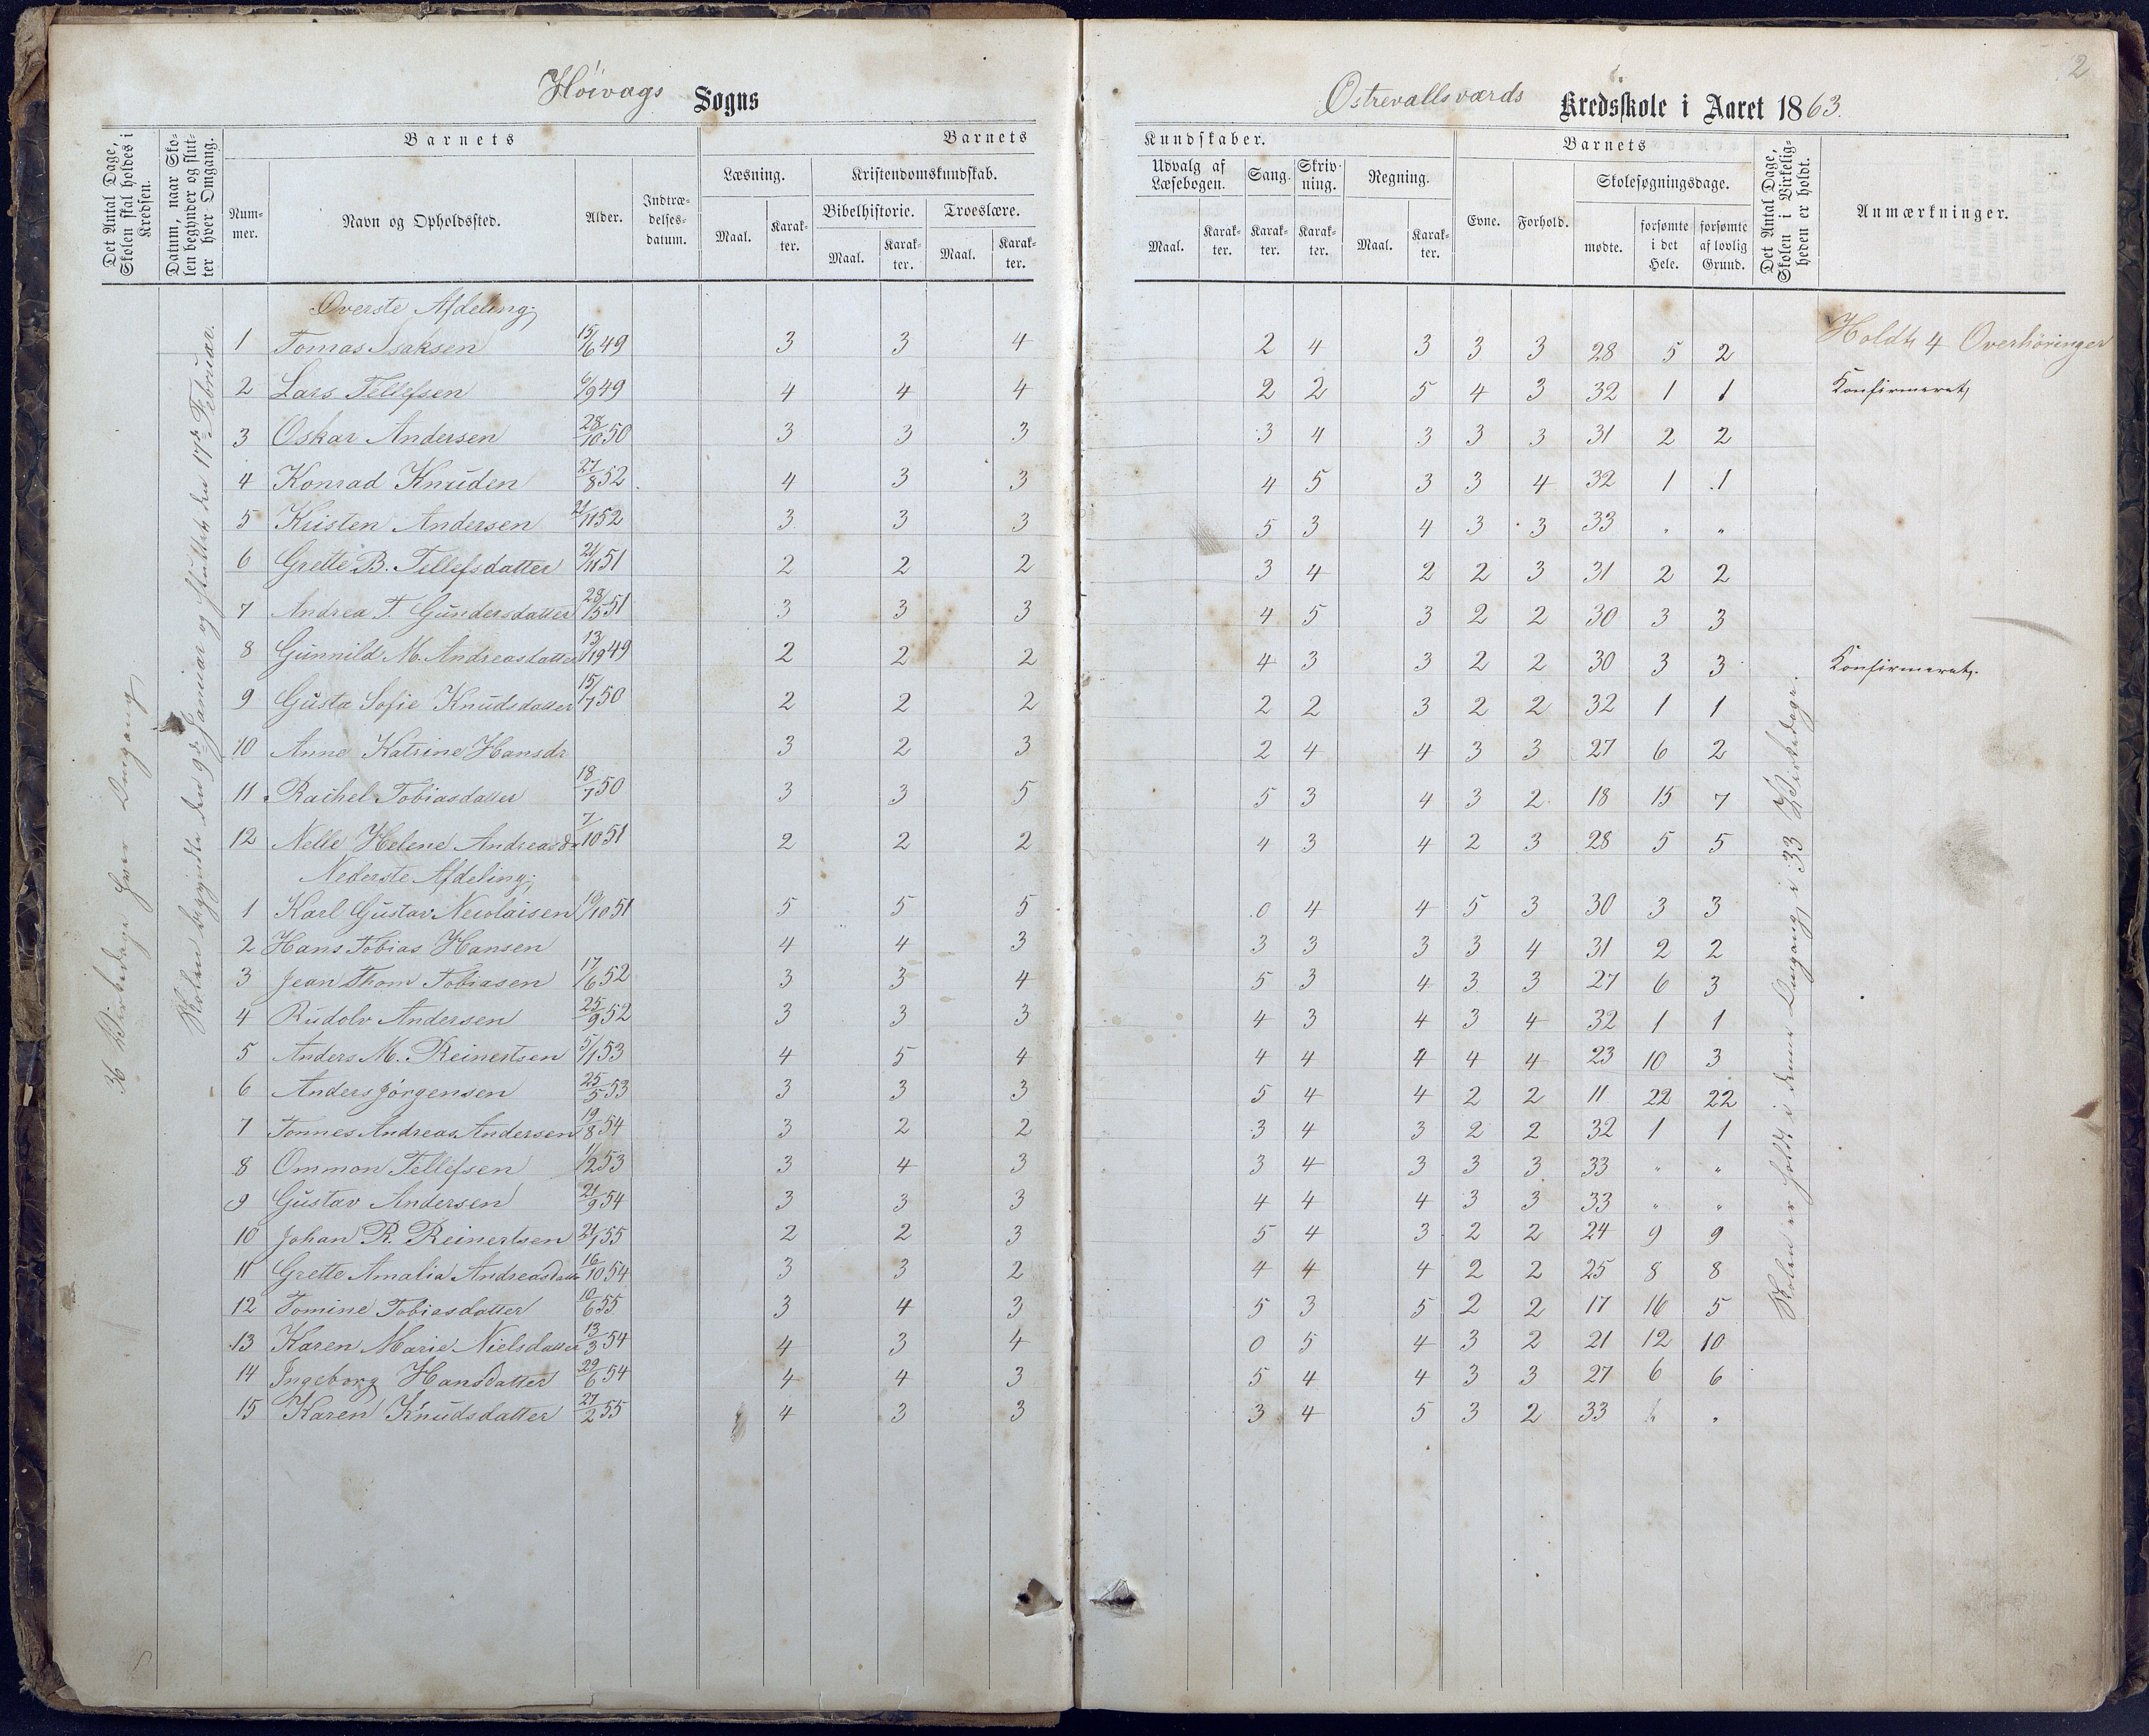 2
Höivags Sogns
Østrevallesværds Kredsskole i Aaret 1863.
Det Antal Dage, Skolen skal holdes i Kredsen.
Datum, naar Skolen begynder og slutter hver Omgang.
Barnets
Barnets
Kundskaber.
Barnets
Nummer.
Navn og Opholdssted.
Alder.
Indtrædelsesdatum.
Læsning.
Kristendomskundskab.
Bibelhistorie.
Troeslære.
Maal. Karakter. Maal. Karakter. Maal. Karakter.
Udvalg af Læsebogen.
Sang.
Skrivning.
Regning.
Maal. Karakter. Karakter. Karakter. Maal. Karakter.
Evne.
Forhold.
Skolesøgningsdage.
mødte.
forsømte i det Hele.
forsømte af lovlig Grund.
Det Antal Dage, Skolen i Virkeligheden er holdt.
Anmærkninger.
36 Virkedage hver Omgang
Skolen begyndte den 9de Januar og sluttet den 17de Februar.
Skolen er holdt i denne Omgang i 33 Virkedage.
Øverste Afdeling;
Holdt 4 Overhøringer
1 Tomas Isaksen 15/6 49 3 3 4 2 4 3 3 3 28 5 2
2 Lars Tellefsen 6/9 49 4 4 4 2 2 5 4 3 32 1 1 Konfirmeret
3 Oskar Andersen 28/10 50 3 3 3 3 4 3 3 3 31 2 2
4 Konrad Knuden 27/8 52 4 3 3 4 5 3 3 4 32 1 1
5 Kristen Andersen 21/11 52 3 3 3 5 3 4 3 3 33 " "
6 Grette B. Tellefsdatter 21/11 51 2 2 2 3 4 2 2 3 31 2 2
7 Andrea T. Gundersdatter 28/5 51 3 3 3 4 5 3 2 2 30 3 3
8 Gunnild M. Andreasdatter 49 2 2 2 4 3 3 2 2 30 3 3 Konfirmeret.
9 Gusta Sofie Knudsdatter 15/7 50 2 2 2 2 2 3 2 2 32 1 1
10 Anne Katrine Hansdr 3 2 3 2 4 4 3 3 27 6 2
11 Rachel Tobiasdatter 18/7 50 3 3 5 5 3 4 3 2 18 15 7
12 Nelle Helene Andreasd. 7/10 51 2 2 2 4 3 4 2 3 28 5 5
Nederste Afdeling;
1 Karl Gustav Necolaisen 19/10 51 5 5 5 0 4 4 5 3 30 3 3
2 Hans Tobias Hansen 4 4 3 3 3 3 3 4 31 2 2
3 Jean Thom Tobiasen 17/6 52 3 3 4 5 3 4 3 3 27 6 3
4 Rudolv Andersen 25/9 52 3 3 3 4 3 4 3 4 32 1 1
5 Anders M. Reinertsen 5/1 53 4 5 4 4 4 4 4 4 23 10 3
6 Anders Jörgensen 25/5 53 3 3 3 5 4 4 2 2 11 22 22
7 Tonnes Andreas Andersen 19/8 54 3 2 2 3 4 3 2 2 32 1 1
8 Ommon Tellefsen 1/2 53 3 4 3 3 4 3 3 3 33 " "
9 Gustav Andersen 21/9 54 3 3 3 4 4 4 3 3 33 " "
10 Johan R. Reinertsen 21/1 55 2 2 3 5 4 3 2 2 24 9 9
11 Grette Amalia Andreasdatter 16/10 54 3 3 2 4 4 4 2 2 25 8 8
12 Tomine Tobiasdatter 10/6 55 3 4 3 5 3 5 2 2 17 16 5
13 Karen Marie Nielsdatter 13/3 54 4 3 4 0 5 4 3 2 21 12 10
14 Ingeborg Hansdatter 29/6 54 4 4 3 5 4 4 3 3 27 6 6
15 Karen Knudsdatter 27/2 55 4 3 3 3 4 5 3 2 33